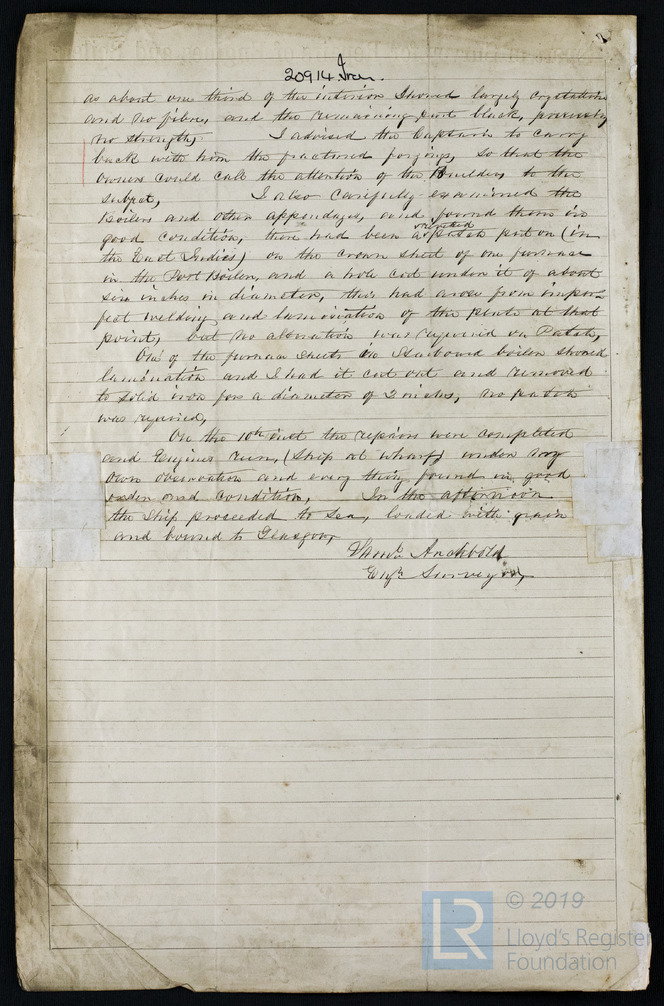 20914 Iron.
as about one third of the interior showed largely
and no fibre, and the remaining part black, possessing
no strength, I advised the Captain to carry
back with him the fractured forging, so that the
owners could call the attention of the Builders to the
subject, I also carefully examined the
Boilers and other appendages, and found them in
good condition, there had been a riveted patch put on (in
the East Indies) on the crown sheet of one furnace
in the Port Boiler, and a hole cut under it of about
six inches in diameter, this had arose from imper-
fect welding and lamination of the plate at that
point, but no alteration was required on Patch,
One of the furnace sheets in Starboard boiler showed
lamination and I had it cut out and removed
to solid iron for a diameter of 2 inches, no patch
was required,
On the 10th inst the repairs were completed
and Engines run, (Ship at wharf) under my
own observation and every thing found in good
order and condition, In the afternoon
the Ship proceeded to Sea, loaded with grain
and bound to Glasgow,
Archbold
Engr Surveyor,
LR
© 2019
Lloyd's Register
Foundation